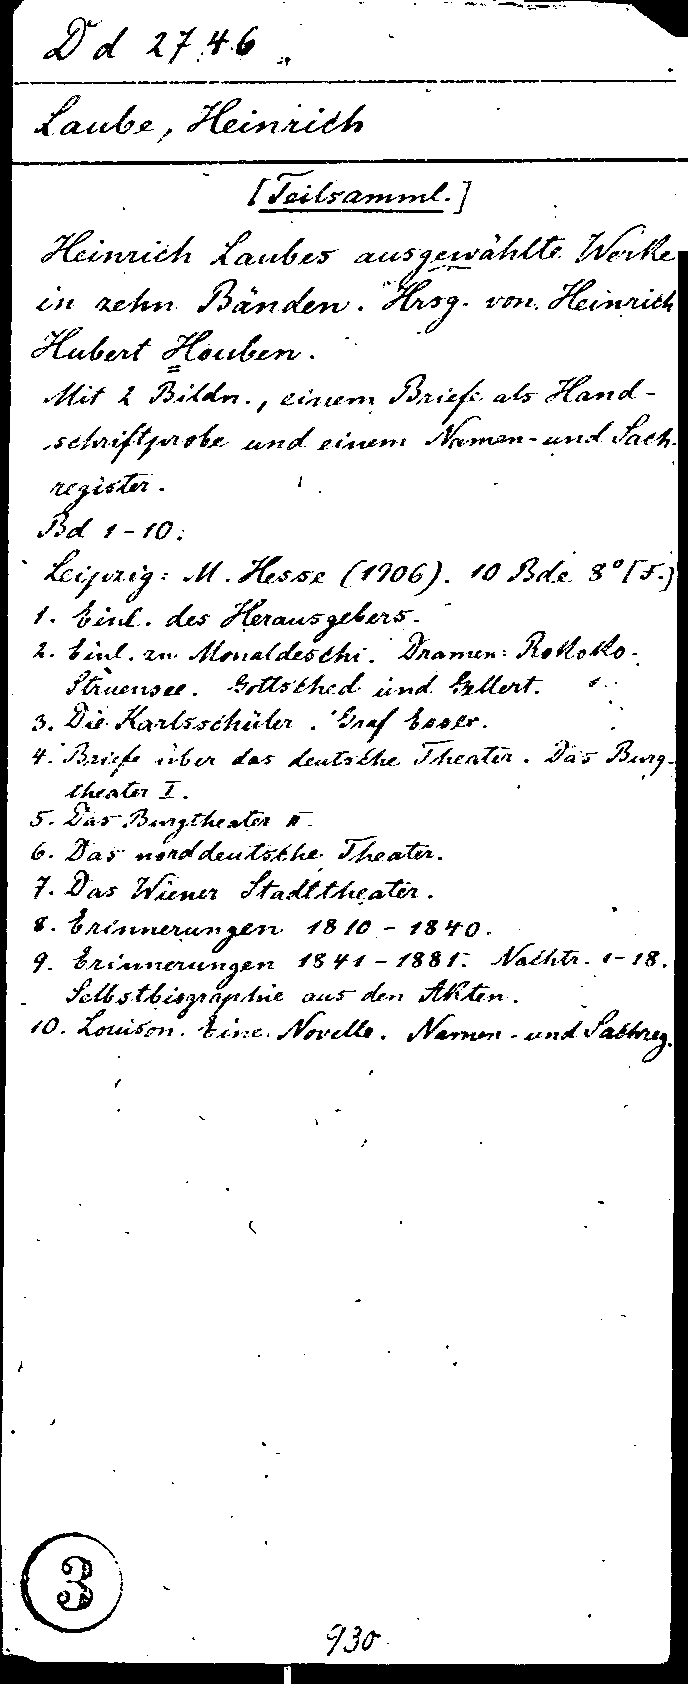 Dd 2746.
Laube, Heinrich
[Teilsamml.]
Heinrich Laubes ausgewählte Werke
in zehn Bänden. Hrsg. von Heinrich
Hubert Houben.
Mit 2 Bildn., einem Briefe als Hand-
schriftprobe und einem Namen- und Sach-
register.
Bd 1-10.
Leipzig: M. Hesse (1906). 10 Bde 8° [F.]
1. Einl. des Herausgebers.
2. Einl. zu Monaldeschi. Dramen: Rokoko.
Struensee. Gottsched und Gellert.
3. Die Karlsschüler. Graf Essex.
4. Briefe über das deutsche Theater. Das Burg-
theater I.
5. Das Burgtheater II.
6. Das norddeutsche Theater.
7. Das Wiener Stadttheater.
8. Erinnerungen 1810-1840.
9. Erinnerungen 1841-1881. Nachtr. 1-18.
Selbstbiographie aus den Akten.
10. Louison. Eine Novelle. Namen- und Sachreg.
3
930